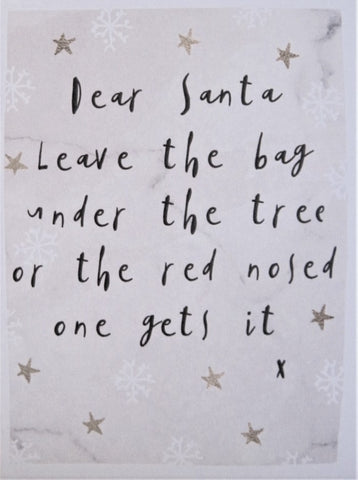 Dear Santa
Leave the bag
under the tree
or the red nosed
one gets it
x